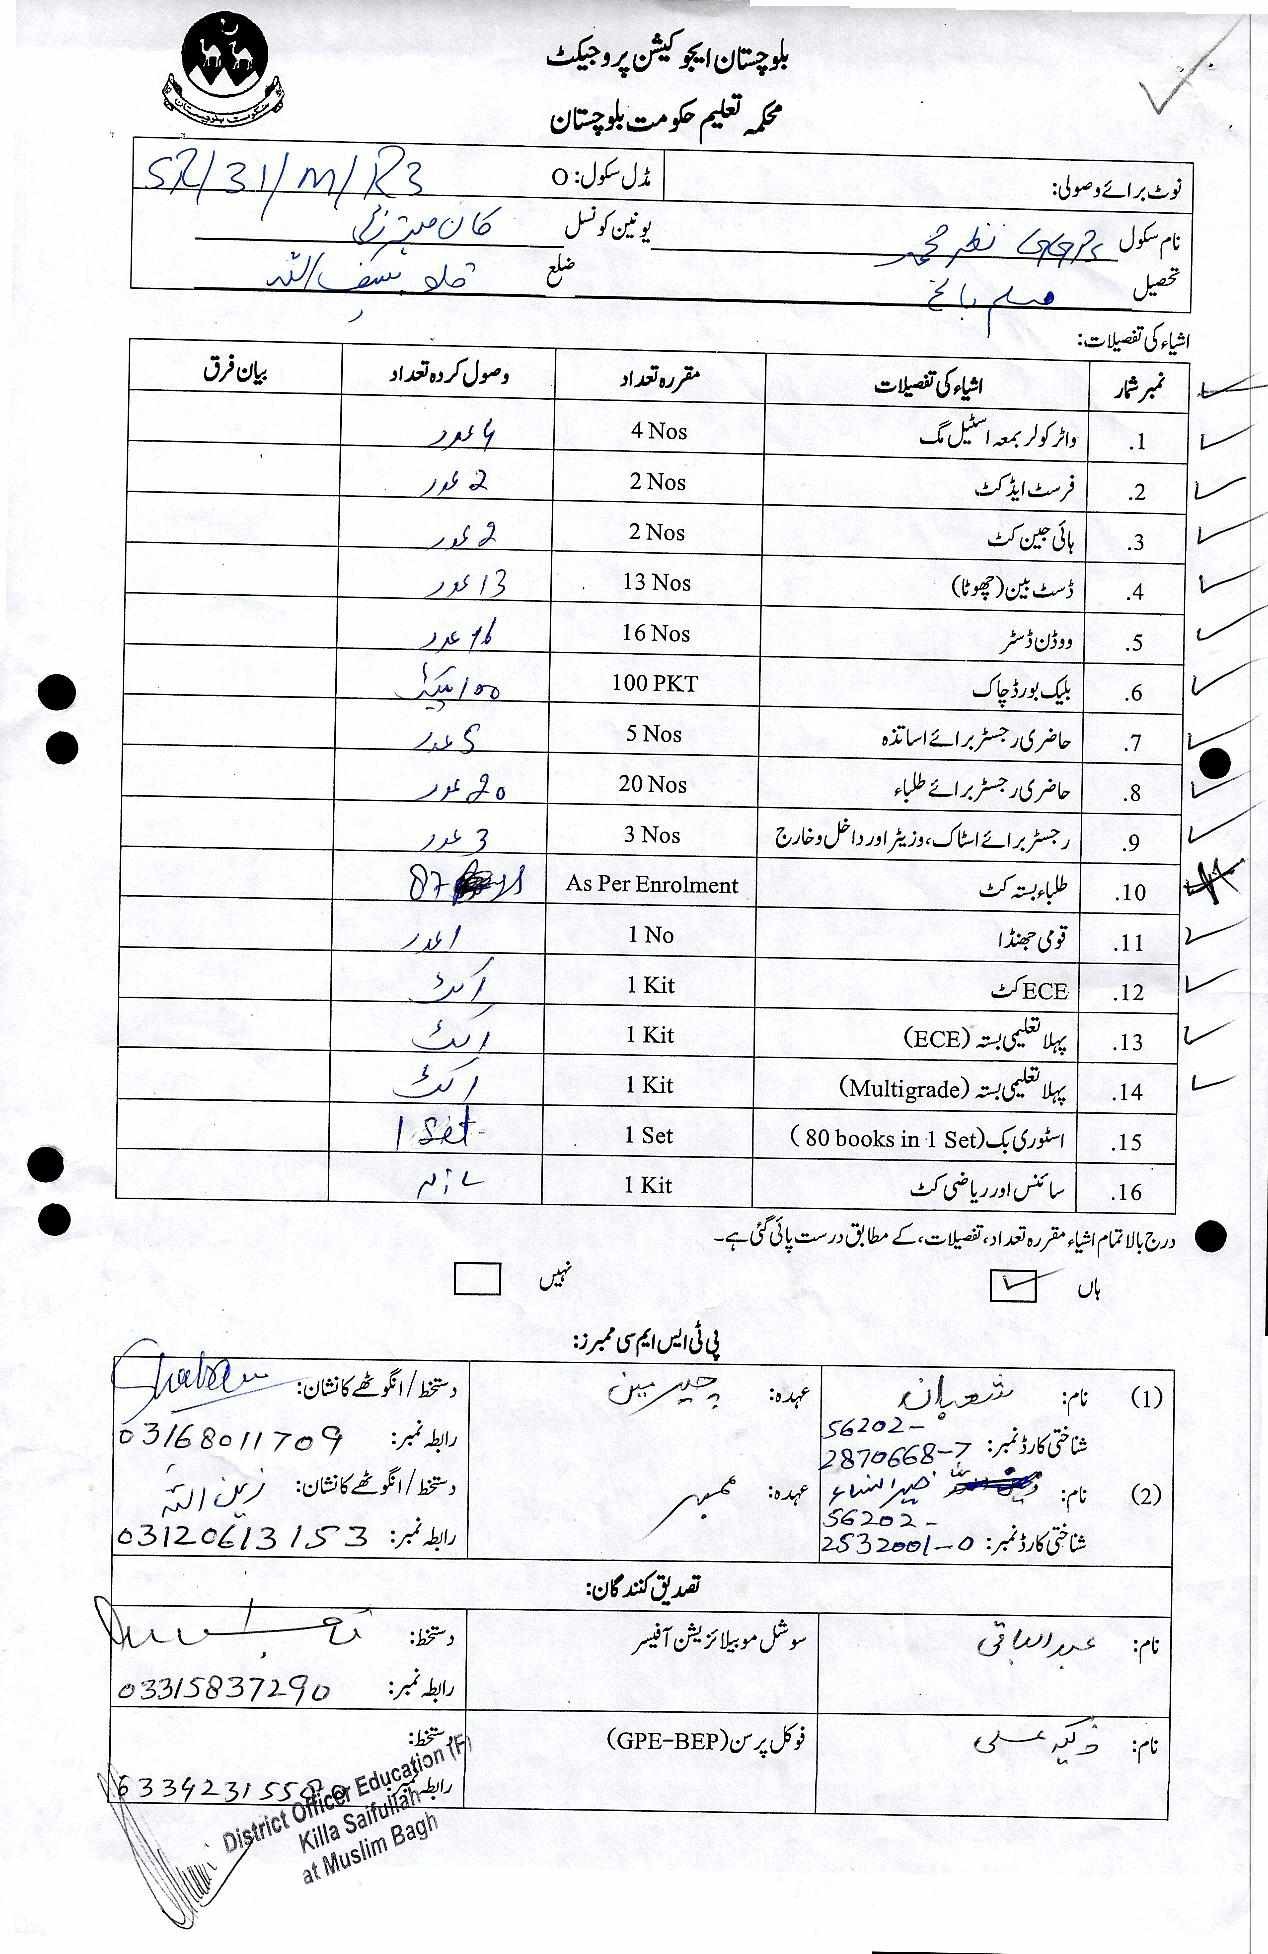 حکومت بلوچستان
بلوچستان ایجوکیشن پروجیکٹ
محکمہ تعلیم حکومت بلوچستان
نوٹ برائے وصولی: مڈل سکول: O SR/31/M/R3
نام سکول GGPS نظر محمد یونین کونسل کان مہترزئی
تحصیل مسلم باغ ضلع قلعہ سیف اللہ
اشیاء کی تفصیلات:
نمبر شمار اشیاء کی تفصیلات مقررہ تعداد وصول کردہ تعداد بیان فرق
1. واٹر کولر بمعہ اسٹیل مگ 4 Nos 4 عدد
2. فرسٹ ایڈ کٹ 2 Nos 2 عدد
3. ہائی جین کٹ 2 Nos 2 عدد
4. ڈسٹ بین (چھوٹا) 13 Nos 13 عدد
5. ووڈن ڈسٹر 16 Nos 16 عدد
6. بلیک بورڈ چاک 100 PKT 100 پیکٹ
7. حاضری رجسٹر برائے اساتذہ 5 Nos 5 عدد
8. حاضری رجسٹر برائے طلباء 20 Nos 20 عدد
9. رجسٹر برائے اسٹاک، وزیٹر اور داخل و خارج 3 Nos 3 عدد
10. طلباء بستہ کٹ As Per Enrolment 87
11. قومی جھنڈا 1 No 1 عدد
12. ECE کٹ 1 Kit 1 کٹ
13. پہلا تعلیمی بستہ (ECE) 1 Kit 1 کٹ
14. پہلا تعلیمی بستہ (Multigrade) 1 Kit 1 کٹ
15. اسٹوری بک (80 books in 1 Set) 1 Set 1 Set
16. سائنس اور ریاضی کٹ 1 Kit
درج بالا تمام اشیاء مقررہ تعداد، تفصیلات، کے مطابق درست پائی گئی ہے۔
ہاں نہیں
پی ٹی ایس ایم سی ممبرز:
(1) نام: شعبان عہدہ: چیرمین دستخط / انگوٹھے کا نشان: Shaban
شناختی کارڈ نمبر: 56202-2870668-7 رابطہ نمبر: 03168011709
(2) نام: خیر النساء عہدہ: ممبر دستخط / انگوٹھے کا نشان: زین اللہ
شناختی کارڈ نمبر: 56202-2532001-0 رابطہ نمبر: 03120613153
تصدیق کنندگان:
نام: عبدالباقی سوشل موبیلائزیشن آفیسر دستخط:
رابطہ نمبر: 03315837290
نام: ذکیہ علی فوکل پرسن (GPE-BEP) دستخط:
رابطہ نمبر:
District Officer Education (F)
Killa Saifullah
at Muslim Bagh